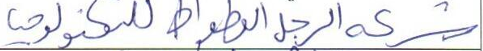 شركة الرجل الوطواط للتكنولوجيا